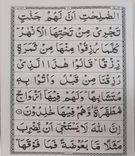 الصّٰلِحٰتِ اَنَّ لَهُمْ جَنّٰتٍ
تَجْرِیْ مِنْ تَحْتِهَا الْاَنْهٰرُ
كُلَّمَا رُزِقُوْا مِنْهَا مِنْ ثَمَرَةٍ
رِّزْقًا قَالُوْا هٰذَا الَّذِیْ
رُزِقْنَا مِنْ قَبْلُ وَاُتُوْا بِهٖ
مُتَشَابِهًا وَلَهُمْ فِیْهَا اَزْوَاجٌ
مُّطَهَّرَةٌ وَّهُمْ فِیْهَا خٰلِدُوْنَ
اِنَّ اللّٰهَ لَا یَسْتَحْیٖۤ اَنْ یَّضْرِبَ
مَثَلًا مَّا بَعُوْضَةً فَمَا فَوْقَهَا